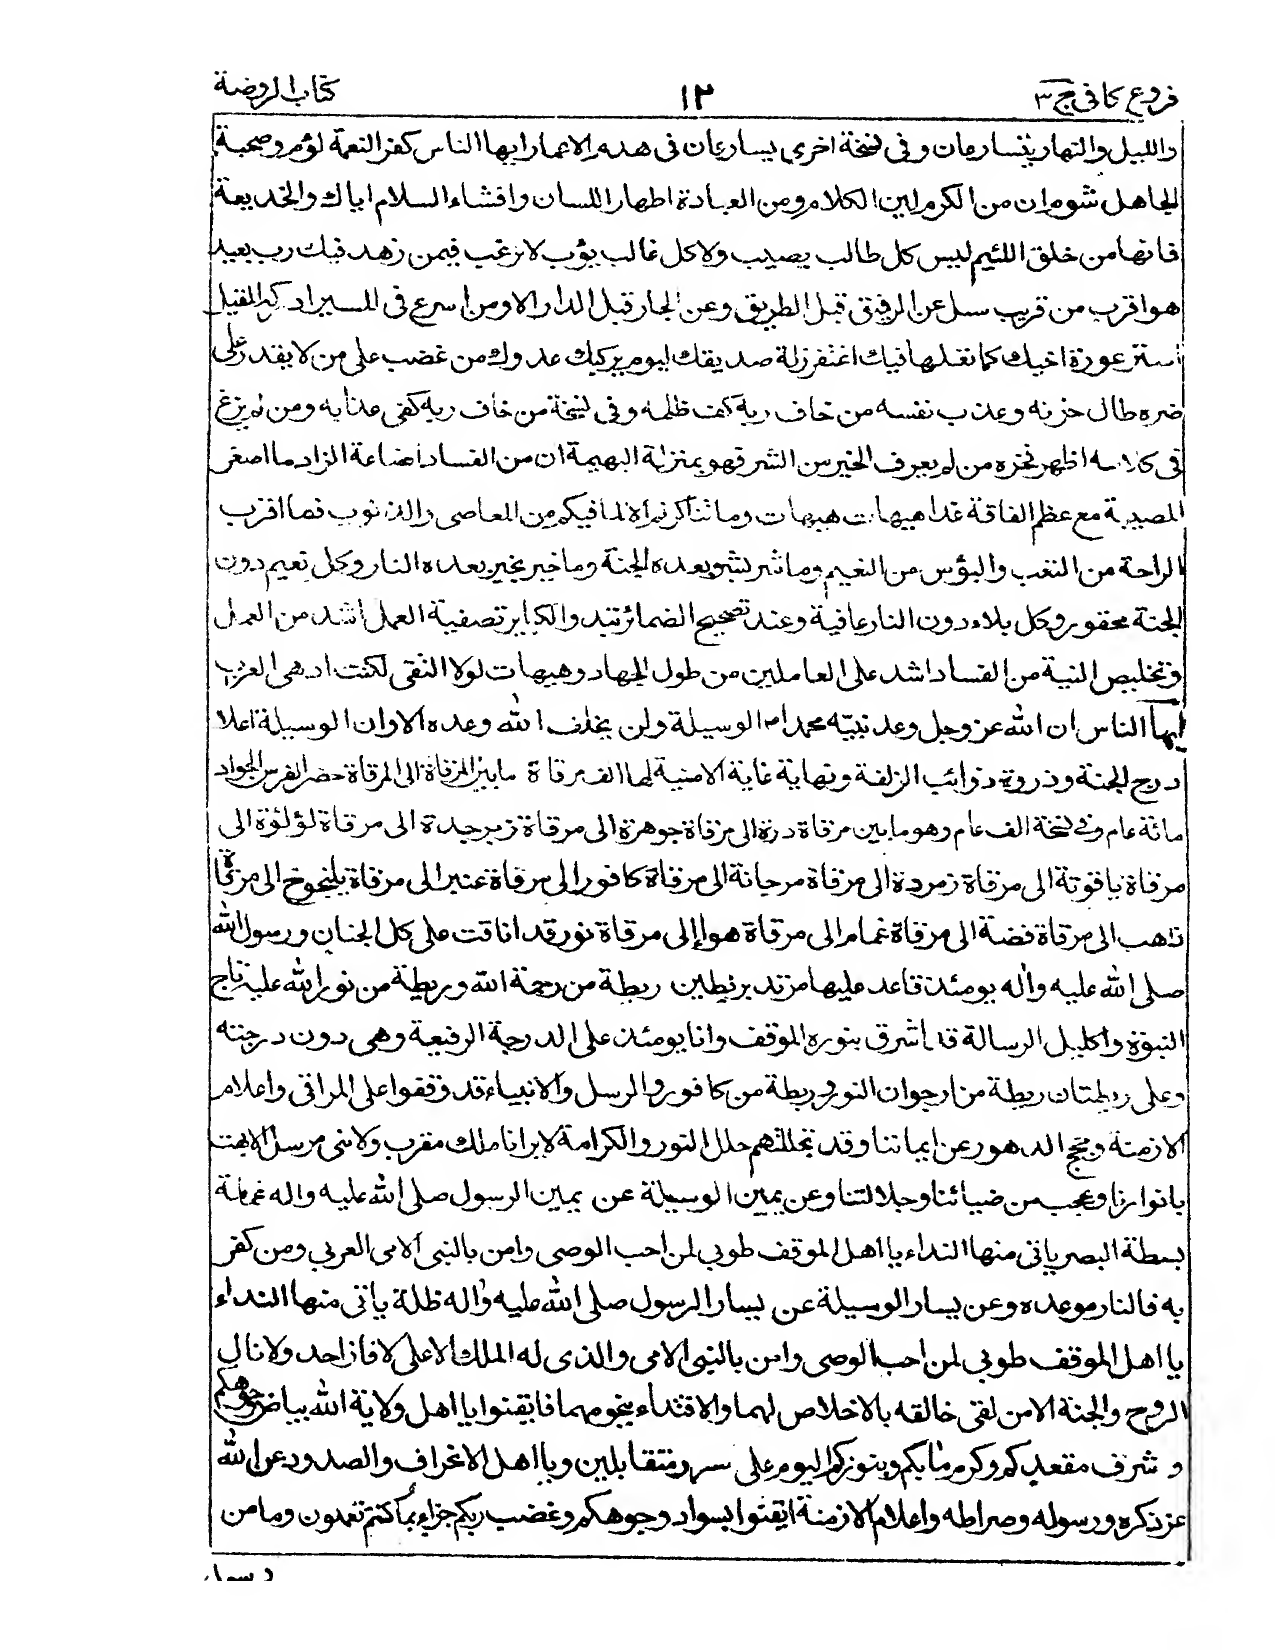 فروع كافى ج ٣
١٢
كتاب الروضة
والليل والنهار يتسارعان وفى نسخة اخرى يسارعان فى هدم الاعمار ايها الناس كفر النعمة لؤم وصحبة
الجاهل شوم ان من الكرم لين الكلام ومن العبادة اظهار اللسان وافشاء السلام اياك والخديعة
فانها من خلق اللئيم ليس كل طالب يصيب ولا كل غائب يؤب لا ترغب فيمن زهد فيك رب بعيد
هو اقرب من قريب سل عن الرفيق قبل الطريق وعن الجار قبل الدار الا ومن اسرع فى المسير ادركه المقيل
استر عورة اخيك كما تعلمها فيك اغتفر زلة صديقك ليوم يركبك عدوك من غضب على من لا يقدر على
ضره طال حزنه وعذب نفسه من خاف ربه كف ظلمه وفى نسخة من خاف ربه كفى عذابه ومن لم يزغ
فى كلامه اظهر فخره من لم يعرف الخير من الشر فهو بمنزلة البهيمة ان من الفساد اضاعة الزاد ما اصغر
المصيبة مع عظم الفاقة غدا هيهات هيهات وما تناكرتم الا لما فيكم من المعاصى والذنوب فما اقرب
الراحة من التعب والبؤس من النعيم وما شر بشر بعده الجنة وما خير بخير بعده النار وكل نعيم دون
الجنة محقور وكل بلاء دون النار عافية وعند تصحيح الضمائر تبدو الكبائر تصفية العمل اشد من العمل
وتخليص النية من الفساد اشد على العاملين من طول الجهاد وهيهات لولا التقى لكنت ادهى العرب
ايها الناس ان الله عز وجل وعد نبيه محمدا الوسيلة ولن يخلف الله وعده الا وان الوسيلة اعلا
درج الجنة وذروة ذوائب الزلفة ونهاية غاية الامنية لها الف مرقاة ما بين المرقاة الى المرقاة حضر الفرس الجواد
مائة عام وفى نسخة الف عام وهو ما بين مرقاة درة الى مرقاة جوهرة الى مرقاة زبرجدة الى مرقاة لؤلؤة الى
مرقاة ياقوتة الى مرقاة زمردة الى مرقاة مرجانة الى مرقاة كافور الى مرقاة عنبر الى مرقاة يلنجوج الى مرقاة
ذهب الى مرقاة فضة الى مرقاة غمام الى مرقاة هواء الى مرقاة نور قد انافت على كل الجنان ورسول الله
صلى الله عليه واله يومئذ قاعد عليها مرتد بريطتين ريطة من رحمة الله وريطة من نور الله عليه تاج
النبوة واكليل الرسالة قد اشرق بنوره الموقف وانا يومئذ على الدرجة الرفيعة وهى دون درجته
وعلى ريطتان ريطة من ارجوان النور وريطة من كافور والرسل والانبياء قد وقفوا على المراقى واعلام
الازمنة وحجج الدهور عن ايماننا وقد تجللتهم حلل النور والكرامة لا يرانا ملك مقرب ولا نبى مرسل الا بهت
بانوارنا وعجب من ضيائنا وجلالتنا وعن يمين الوسيلة عن يمين الرسول صلى الله عليه واله غمامة
بسطة البصر ياتى منها النداء يا اهل الموقف طوبى لمن احب الوصى وامن بالنبى الامى العربى ومن كفر
به فالنار موعده وعن يسار الوسيلة عن يسار الرسول صلى الله عليه واله ظلة ياتى منها النداء
يا اهل الموقف طوبى لمن احب الوصى وامن بالنبى الامى والذى له الملك الاعلى لا فاز احد ولا نال
الروح والجنة الا من لقى خالقه بالاخلاص لهما والاقتداء بنجومهما فايقنوا يا اهل ولاية الله ببياض وجوهكم
وشرف مقعدكم وكرم مابكم وبفوزكم اليوم على سرر متقابلين ويا اهل الانحراف والصدود عن الله
عز ذكره ورسوله وصراطه واعلام الازمنة ايقنوا بسواد وجوهكم وغضب ربكم جزاء بما كنتم تعملون وما من
رسول